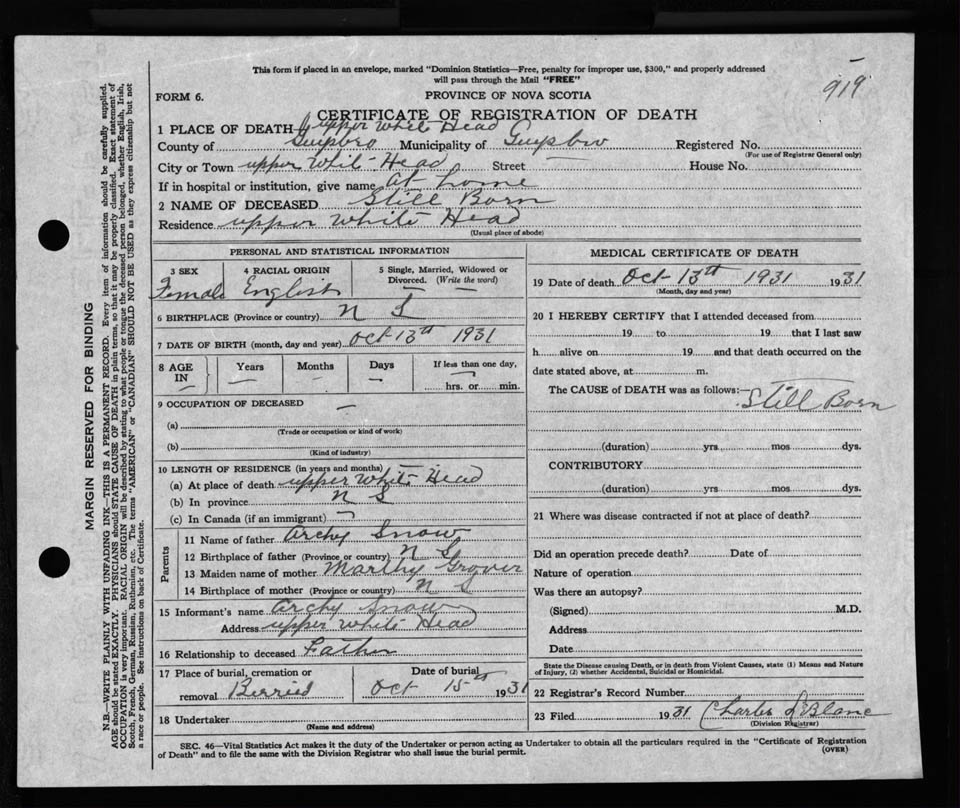 This form if placed in an envelope, marked "Dominion Statistics—Free, penalty for improper use, $300," and properly addressed
will pass through the Mail "FREE"
919
FORM 6.
PROVINCE OF NOVA SCOTIA
CERTIFICATE OF REGISTRATION OF DEATH
1 PLACE OF DEATH upper White Head
County of Guysboro Municipality of Guysboro Registered No.
(For use of Registrar General only)
City or Town upper White Head Street — House No.
If in hospital or institution, give name at home
2 NAME OF DECEASED Still Born
Residence upper White Head
(Usual place of abode)
PERSONAL AND STATISTICAL INFORMATION
3 SEX Female
4 RACIAL ORIGIN English
5 Single, Married, Widowed or Divorced. (Write the word) —
6 BIRTHPLACE (Province or country) N S
7 DATE OF BIRTH (month, day and year) Oct 13th 1931
8 AGE IN — Years — Months — Days — If less than one day, — hrs. or min.
9 OCCUPATION OF DECEASED —
(a)
(Trade or occupation or kind of work)
(b) —
(Kind of industry)
10 LENGTH OF RESIDENCE (in years and months)
(a) At place of death upper White Head
(b) In province N S
(c) In Canada (if an immigrant)
Parents
11 Name of father Archy Snow
12 Birthplace of father (Province or country) N S
13 Maiden name of mother Marthy Grover
14 Birthplace of mother (Province or country) N S
15 Informant's name Archy Snow
Address upper White Head
16 Relationship to deceased Father
17 Place of burial, cremation or removal Berried
Date of burial Oct 15th 1931
18 Undertaker
(Name and address)
MEDICAL CERTIFICATE OF DEATH
19 Date of death Oct 13th 1931 1931
(Month, day and year)
20 I HEREBY CERTIFY that I attended deceased from
19 to 19 that I last saw
h alive on 19 and that death occurred on the
date stated above, at m.
The CAUSE of DEATH was as follows:
Still Born
(duration) yrs. mos. dys.
CONTRIBUTORY
(duration) yrs. mos. dys.
21 Where was disease contracted if not at place of death?
Did an operation precede death? Date of
Nature of operation
Was there an autopsy?
(Signed) M.D.
Address
Date
State the Disease causing Death, or in death from Violent Causes, state (1) Means and Nature
of Injury, (2) whether Accidental, Suicidal or Homicidal.
22 Registrar's Record Number
23 Filed 1931 Charles LeBlanc
(Division Registrar)
SEC. 46—Vital Statistics Act makes it the duty of the Undertaker or person acting as Undertaker to obtain all the particulars required in the "Certificate of Registration
of Death" and to file the same with the Division Registrar who shall issue the burial permit.
(OVER)
MARGIN RESERVED FOR BINDING
N.B.—WRITE PLAINLY WITH UNFADING INK—THIS IS A PERMANENT RECORD. Every item of information should be carefully supplied.
AGE should be stated EXACTLY. PHYSICIANS should STATE CAUSE OF DEATH in plain terms, so that it may be properly classified. Exact statement of
OCCUPATION is very important. RACIAL ORIGIN will be described by stating to what people or tongue the deceased person belonged, whether English, Irish,
Scotch, French, German, Russian, Ruthenian, etc. The terms "AMERICAN" or "CANADIAN" SHOULD NOT BE USED as they express citizenship but not
a race or people. See instructions on back of Certificate.